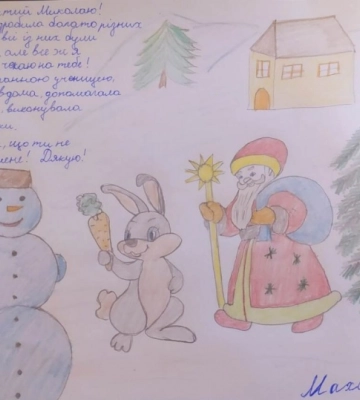 тий Миколаю!
зробила багато різних
ві із них були
але все ж я
чекаю на тебе!
ранною ученицею,
вдома, допомагала
, виконувала
ки.
, що ти не
мене! Дякую!
Мах